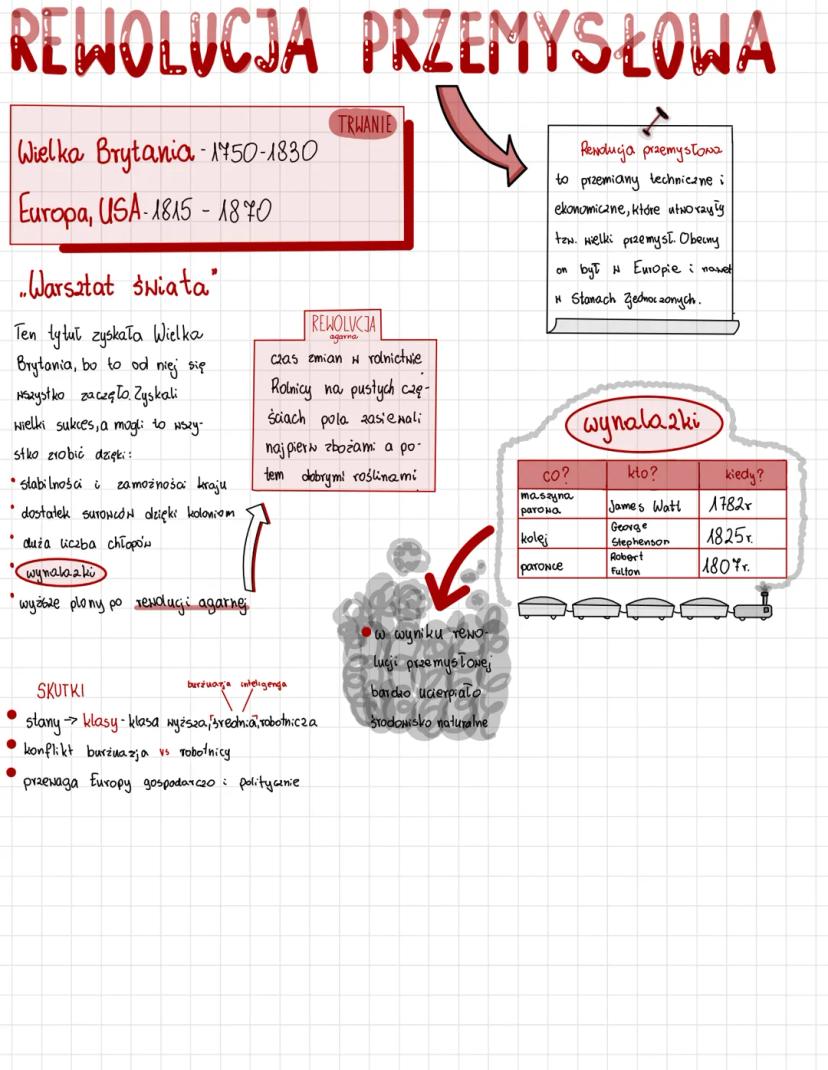 REWOLUCJA PRZEMYSŁOWA
TRWANIE
Wielka Brytania - 1750-1830
Europa, USA - 1815 - 1870
Rewolucja przemysłowa
to przemiany techniczne i
ekonomiczne, które utworzyły
tzw. wielki przemysł. Obecny
on był w Europie i nawet
w Stanach Zjednoczonych.
„Warsztat świata"
Ten tytuł zyskała Wielka
Brytania, bo to od niej się
wszystko zaczęło. Zyskali
wielki sukces, a mogli to wszy-
stko zrobić dzięki:
• stabilności i zamożności kraju
• dostatek surowców dzięki koloniom
• duża liczba chłopów
• wynalazki
• wyższe plony po rewolucji agarnej
REWOLUCJA
agarna
czas zmian w rolnictwie
Rolnicy na pustych czę-
ściach pola zasiewali
najpierw zbożami a po-
tem dobrymi roślinami
wynalazki
co? kto? kiedy?
maszyna
parowa
James Watt 1782r
kolej George
Stephenson 1825r.
parowce Robert
Fulton 1807r.
• w wyniku rewo-
lucji przemysłowej
bardzo ucierpiało
środowisko naturalne
SKUTKI
burżuazja inteligencja
• stany → klasy - klasa wyższa, średnia, robotnicza
• konflikt burżuazja vs robotnicy
• przewaga Europy gospodarczo i politycznie